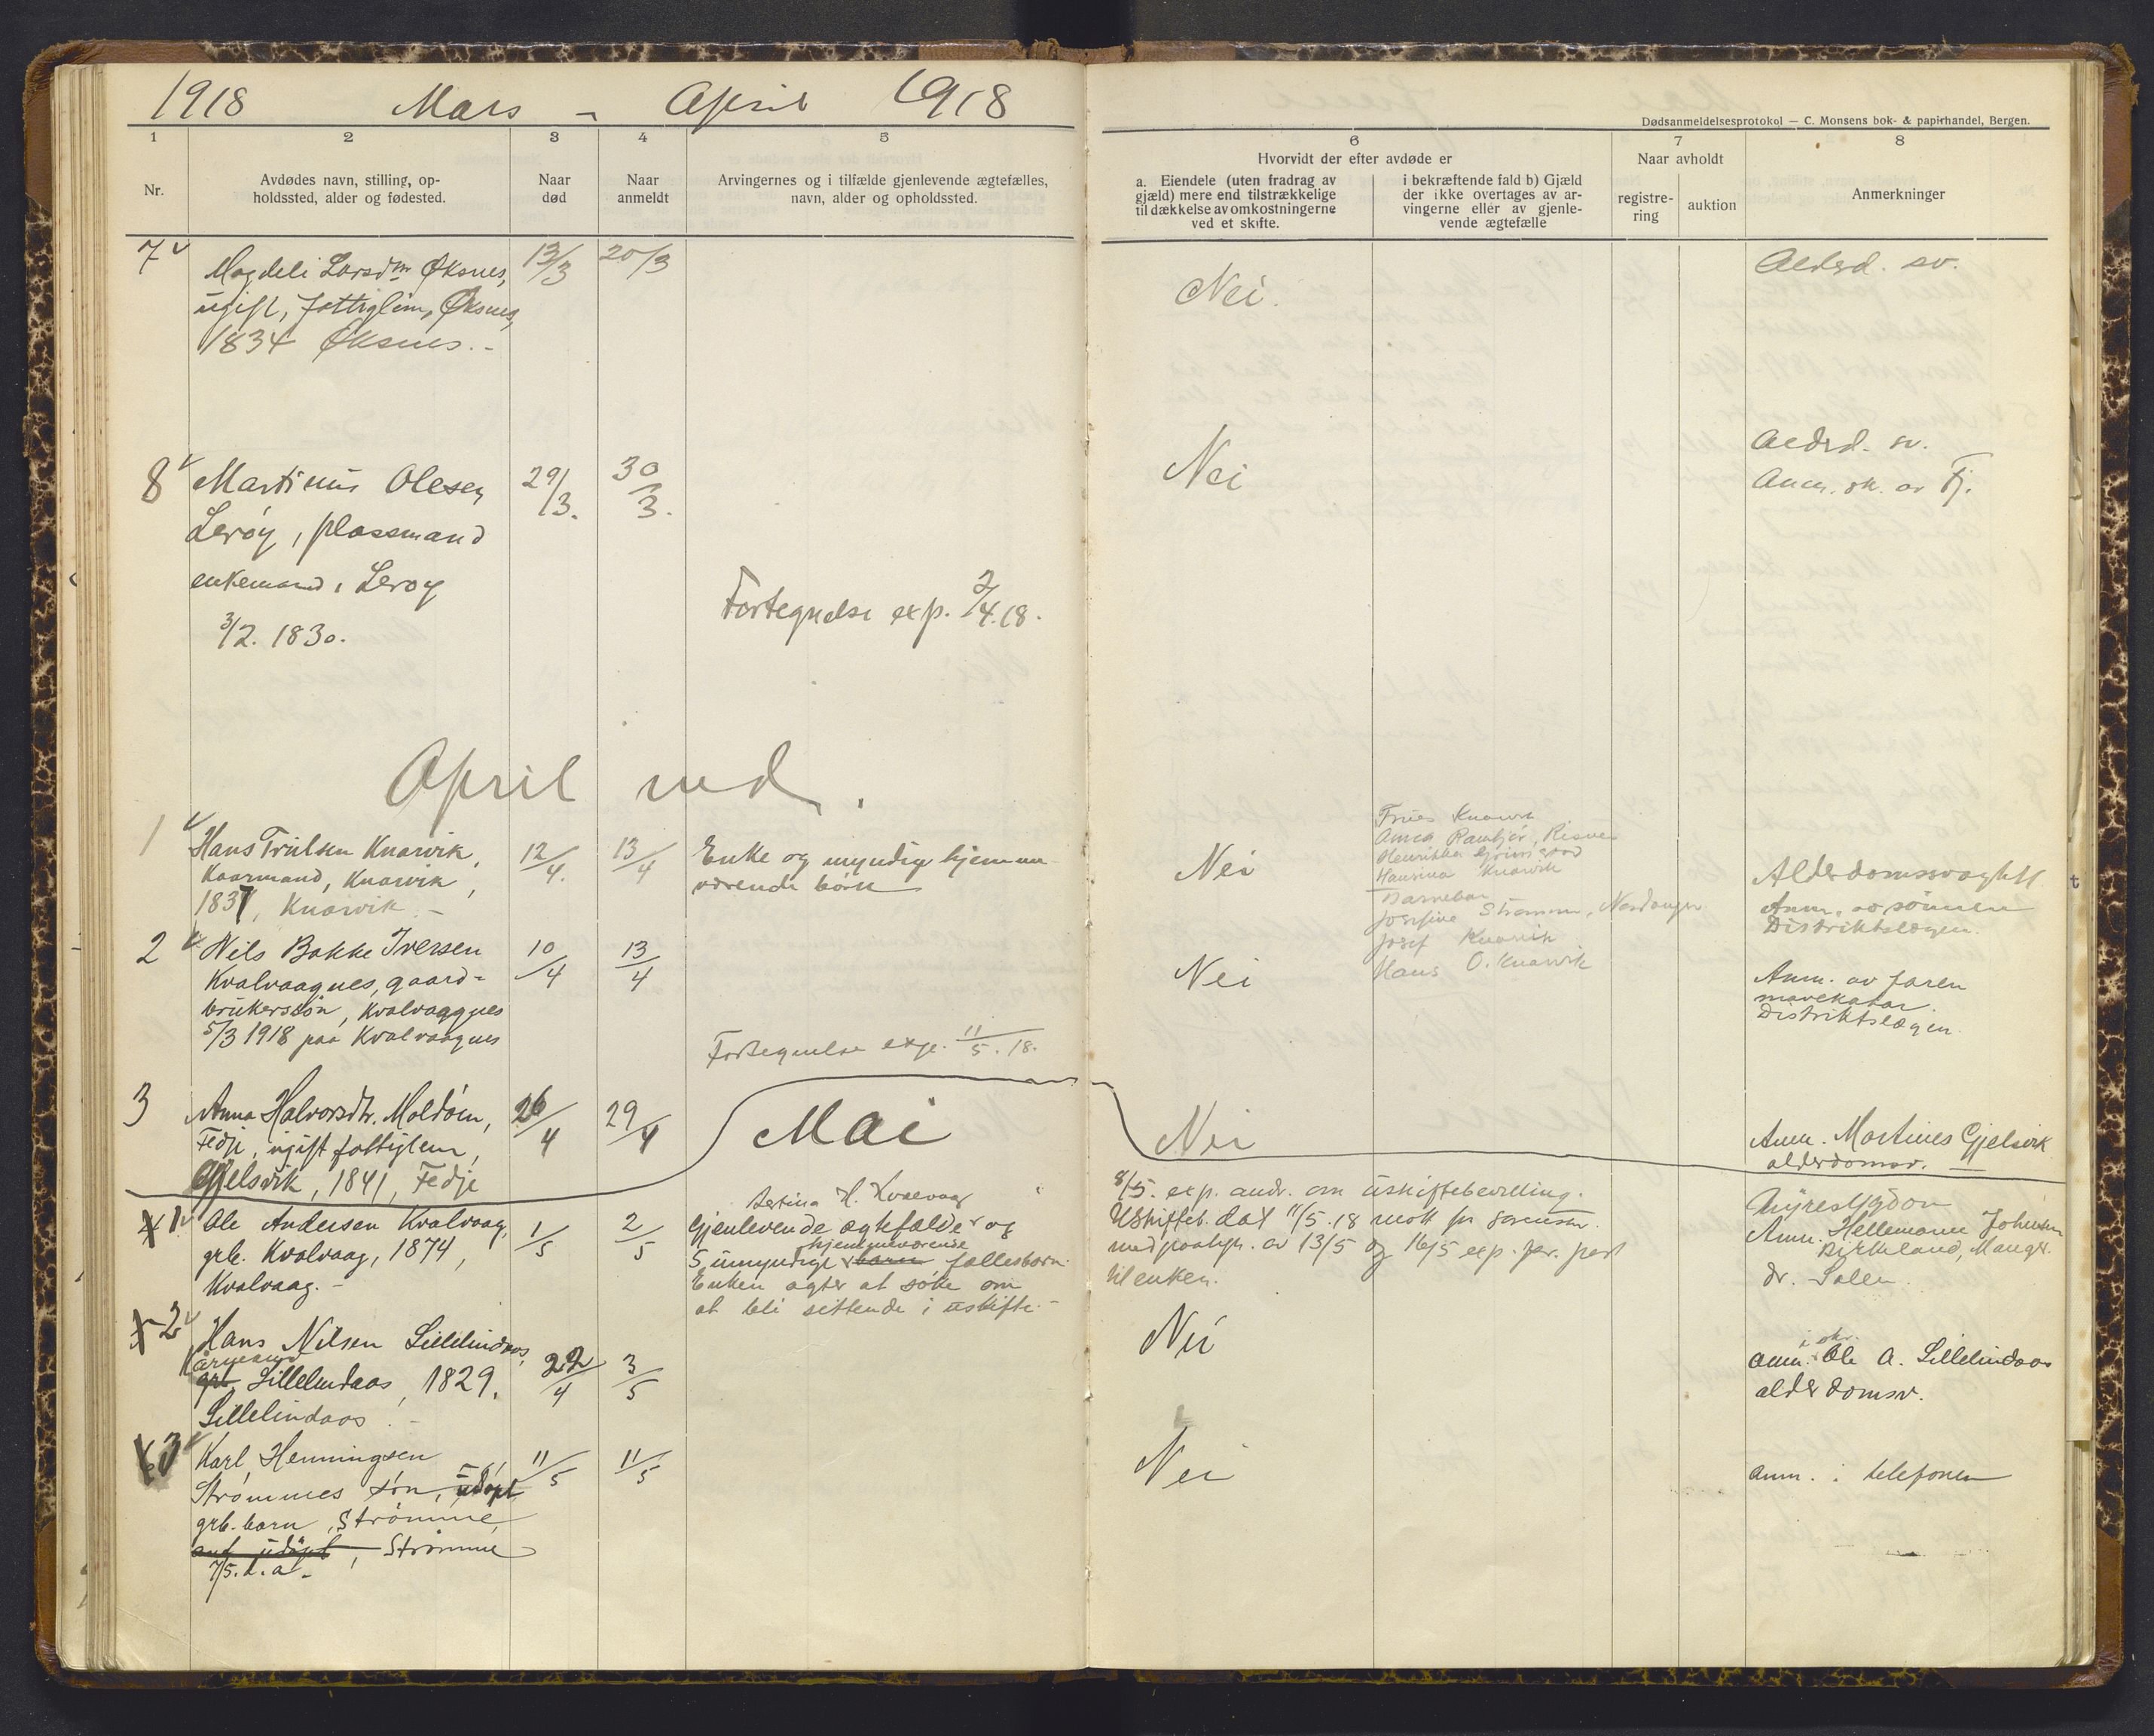 1918 Mars - April 1918
Dødsanmeldelsesprotokol — C. Monsens bok- & papirhandel, Bergen.
1
2
3
4
5
6
7
8
Nr.
Avdødes navn, stilling, op-
holdssted, alder og fødested.
Naar
død
Naar
anmeldt
Arvingernes og i tilfælde gjenlevende ægtefælles,
navn, alder og opholdssted.
Hvorvidt der efter avdøde er
a. Eiendele (uten fradrag av
gjæld) mere end tilstrækkelige
til dækkelse av omkostningerne
ved et skifte.
i bekræftende fald b) Gjæld
der ikke overtages av ar-
vingerne eller av gjenle-
vende ægtefælle
Naar avholdt
registre-
ring
auktion
Anmerkninger
7
Magdeli Larsdtr Øksnes,
ugift, fattiglem, Øksnes,
1834 Øksnes.-
13/3
20/3
Nei.
Alderd. sv.
8
Martinus Olesen
Lerøy, plassmand
enkemand, Lerøy
3/2. 1830.
29/3.
30/3.
Fortegnelse exp. 2/4.18.
Nei
Alderd. sv.
Anm. sk. av Fj.
April md.
1
Hans Trulsen Knarvik,
Kaarmand, Knarvik,
1837, Knarvik -
12/4.
13/4
Enke og myndige hjemme-
værende börn
Nei
Knarvik
Anna
Henrikka
Hansina Knarvik
Barnebar
Josefine Strømme,
Josef Knarvik
Hans O. Knarvik
Alderdomssvaghet
Anm. av sönnen
Distriktslægen.
2
Nils Bakke Iversen
Kvalvaagnes, gaard-
brukerssön, Kvalvaagnes
5/3 1918 paa Kvalvaagnes
10/4
13/4
Fortegnelse exp. 11/5.18.
Nei
Anm. av faren
mavekatar.
Distriktslægen.
3
Anna Halvorsdtr. Moldöen,
Fedje, ugift fattiglem,
Gjelsvik, 1841, Fedje
26/4
29/4
Nei
Anm. Martines Gjelsvik
alderdomsv.
Mai
1
Ole Andersen Kvalvaag,
grb. Kvalvaag, 1874,
Kvalvaag. -
1/5
2/5
H. Kvalvaag
Gjenlevende ægtefælde og
hjemmeværende
5 umyndige barn fællesbarn.
Enken agter at söke om
at bli sittende i uskifte. -
8/5. exp. andr. om uskiftebevilling.
Uskifteb. dat 11/5.18 mott fr sorenskr.
med paategn. av 13/5 og 16/5 exp. pr. post
til enken.
Nyresygdom
Anm. Hellemann Johnsen
Birkeland, Manger.
dr. Salen.
2
Hans Nilsen Lillelindaas,
Kårmand
grb. Lillelindaas, 1829.
Lillelindaas. -
22/4
3/5
Nei
i skr.
anm. Ole A. Lillelindaas
alderdomsv.
3
Karl Henningsen
Strømmes sön, udöpt
grb. barn, Strömme,
udöpt, Strömme
7/5. d. a.-
11/5
11/5
Nei
anm. i telefonen